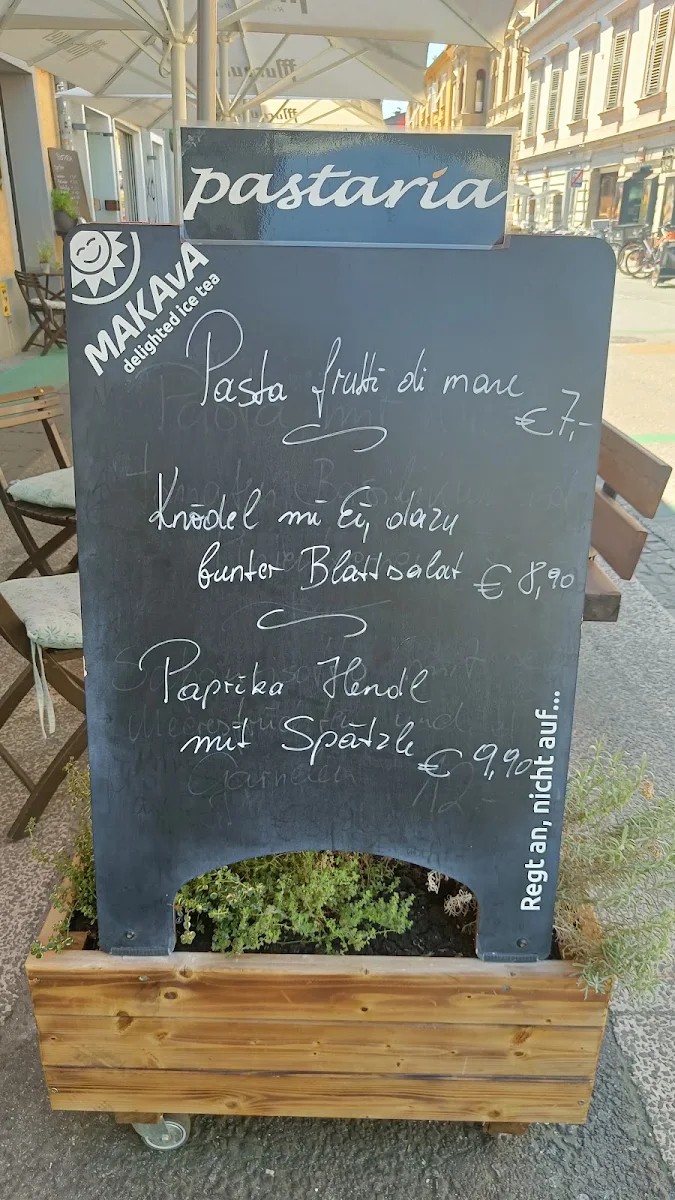 pastaria
MAKAvA
delighted ice tea
Pasta frutti di mare
€ 7,-
Knödel mi Ei, dazu
bunter Blattsalat € 8,90
Paprika Hendl
mit Spätzle € 9,90
Regt an, nicht auf...